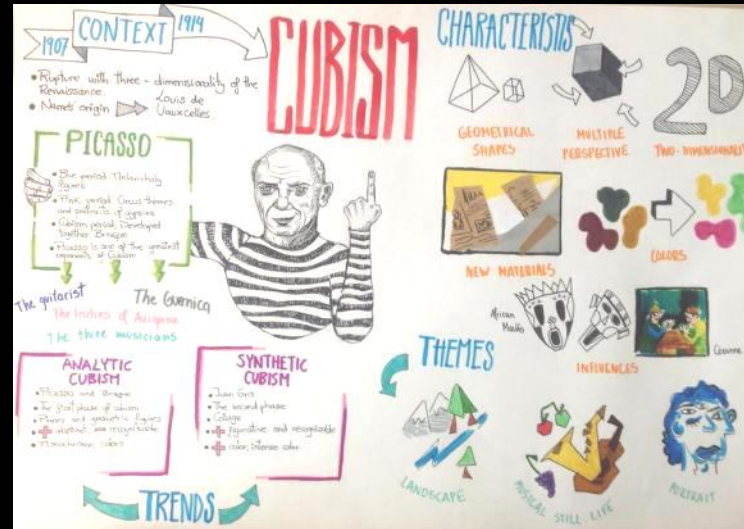 1907 CONTEXT 1914
• Rupture with three-dimensionality of the
Renaissance.
• Name's origin Louis de
Vauxcelles.
CUBISM
PICASSO
• Blue period: Melancholy
figures
• Pink period: Circus themes
and portraits of gypsies
• Cubism period: Developed
together Braque
• Picasso is one of the greatest
exponents of Cubism
The guitarist
The Guernica
The ladies of Avignon
The three musicians
ANALYTIC
CUBISM
• Picasso and Braque
• The first phase of cubism
• Planes and geometric figures
• + abstract recognizable
• Monochrome colors
SYNTHETIC
CUBISM
• Juan Gris
• The second phase
• Collage
• + figurative and recognizable
• + color, intense color
TRENDS
CHARACTERISTIS
GEOMETRICAL
SHAPES
MULTIPLE
PERSPECTIVE
2D
TWO-DIMENSIONALIT
NEW MATERIALS
COLORS
African
Masks
INFLUENCES
Cezanne
THEMES
LANDSCAPE
MUSICAL STILL LIFE
PORTRAIT